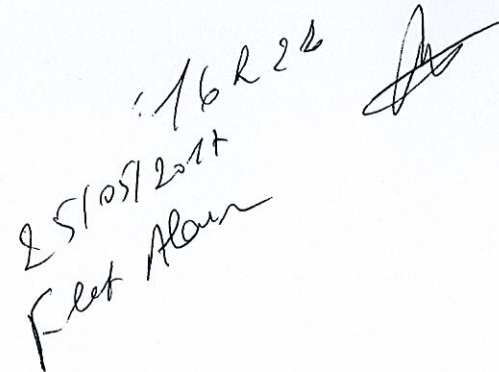 : 16 h 22
25/05/2017
Flet Alain